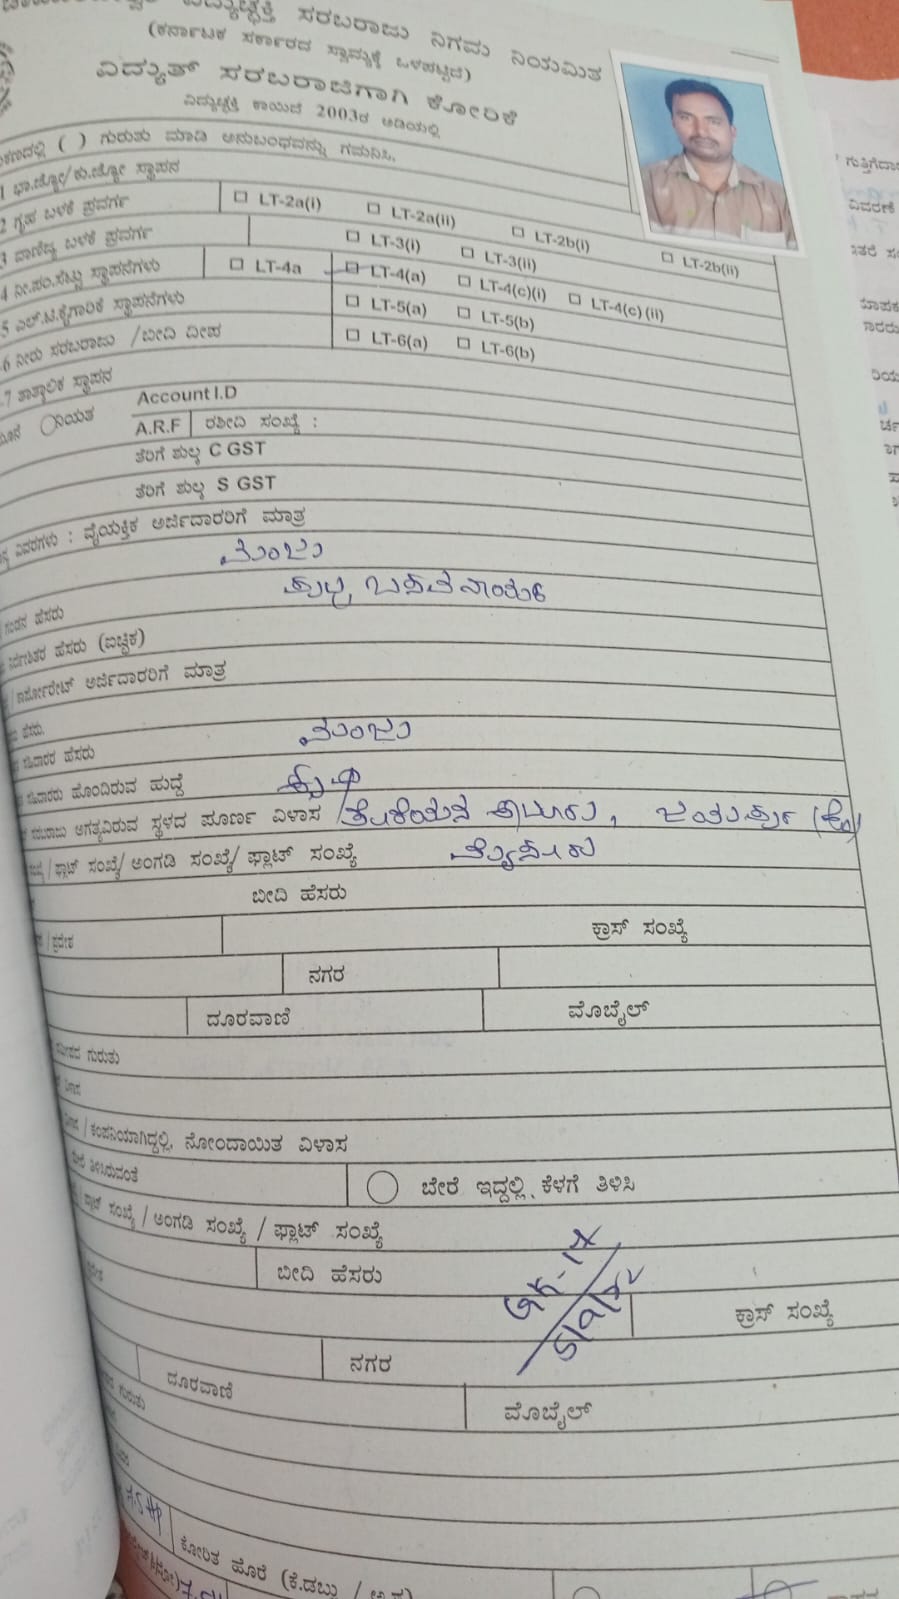 ವಿದ್ಯುಚ್ಛಕ್ತಿ ಸರಬರಾಜು ನಿಗಮ ನಿಯಮಿತ
(ಕರ್ನಾಟಕ ಸರ್ಕಾರದ ಸ್ವಾಮ್ಯಕ್ಕೆ ಒಳಪಟ್ಟಿದೆ)
ವಿದ್ಯುತ್ ಸರಬರಾಜಿಗಾಗಿ ಕೋರಿಕೆ
ವಿದ್ಯುಚ್ಛಕ್ತಿ ಕಾಯಿದೆ 2003ರ ಅಡಿಯಲ್ಲಿ
( ) ಗುರುತು ಮಾಡಿ ಅನುಬಂಧವನ್ನು ಗಮನಿಸಿ.
1 ಭಾ.ಜ್ಯೋ/ಕು.ಜ್ಯೋ ಸ್ಥಾಪನ
2 ಗೃಹ ಬಳಕೆ ಪ್ರವರ್ಗ LT-2a(i) LT-2a(ii) LT-2b(i) LT-2b(ii)
3 ವಾಣಿಜ್ಯ ಬಳಕೆ ಪ್ರವರ್ಗ LT-3(i) LT-3(ii)
4 ನೀ.ಪಂ.ಸೆಟ್ಟು ಸ್ಥಾಪನೆಗಳು LT-4a LT-4(a) LT-4(c)(i) LT-4(c)(ii)
5 ಎಲ್.ಟಿ.ಕೈಗಾರಿಕೆ ಸ್ಥಾಪನೆಗಳು LT-5(a) LT-5(b)
6 ನೀರು ಸರಬರಾಜು /ಬೀದಿ ದೀಪ LT-6(a) LT-6(b)
7 ತಾತ್ಕಾಲಿಕ ಸ್ಥಾಪನ
ನಿಯತ Account I.D
A.R.F ರಶೀದಿ ಸಂಖ್ಯೆ :
ತೆರಿಗೆ ಶುಲ್ಕ C GST
ತೆರಿಗೆ ಶುಲ್ಕ S GST
ವಿವರಗಳು : ವೈಯಕ್ತಿಕ ಅರ್ಜಿದಾರರಿಗೆ ಮಾತ್ರ
ಮಂಜು
ಬಸವನಾಯಕ
ಗಂಡನ ಹೆಸರು
ಹೆಸರು (ಐಚ್ಛಿಕ)
/ಕಾರ್ಪೋರೇಟ್ ಅರ್ಜಿದಾರರಿಗೆ ಮಾತ್ರ
ಹೆಸರು.
ಹೆಸರು ಮಂಜು
ಹೊಂದಿರುವ ಹುದ್ದೆ ಕೃಷಿ
ಸರಬರಾಜು ಅಗತ್ಯವಿರುವ ಸ್ಥಳದ ಪೂರ್ಣ ವಿಳಾಸ
/ಫ್ಲಾಟ್ ಸಂಖ್ಯೆ/ ಅಂಗಡಿ ಸಂಖ್ಯೆ/ ಫ್ಲಾಟ್ ಸಂಖ್ಯೆ ಮೈಸೂರು
ಬೀದಿ ಹೆಸರು
/ಪ್ರದೇಶ ಕ್ರಾಸ್ ಸಂಖ್ಯೆ
ನಗರ
ದೂರವಾಣಿ ಮೊಬೈಲ್
ಗುರುತು
/ಕಂಪನಿಯಾಗಿದ್ದಲ್ಲಿ, ನೋಂದಾಯಿತ ವಿಳಾಸ
ತಿಳಿಸಿರುವಂತೆ ಬೇರೆ ಇದ್ದಲ್ಲಿ, ಕೆಳಗೆ ತಿಳಿಸಿ
ಸಂಖ್ಯೆ / ಅಂಗಡಿ ಸಂಖ್ಯೆ / ಫ್ಲಾಟ್ ಸಂಖ್ಯೆ
ಬೀದಿ ಹೆಸರು
ಕ್ರಾಸ್ ಸಂಖ್ಯೆ
ನಗರ
ದೂರವಾಣಿ ಮೊಬೈಲ್
ಗುರುತು
ಕೋರಿತ ಹೊರೆ (ಕೆ.ಡಬ್ಲು /